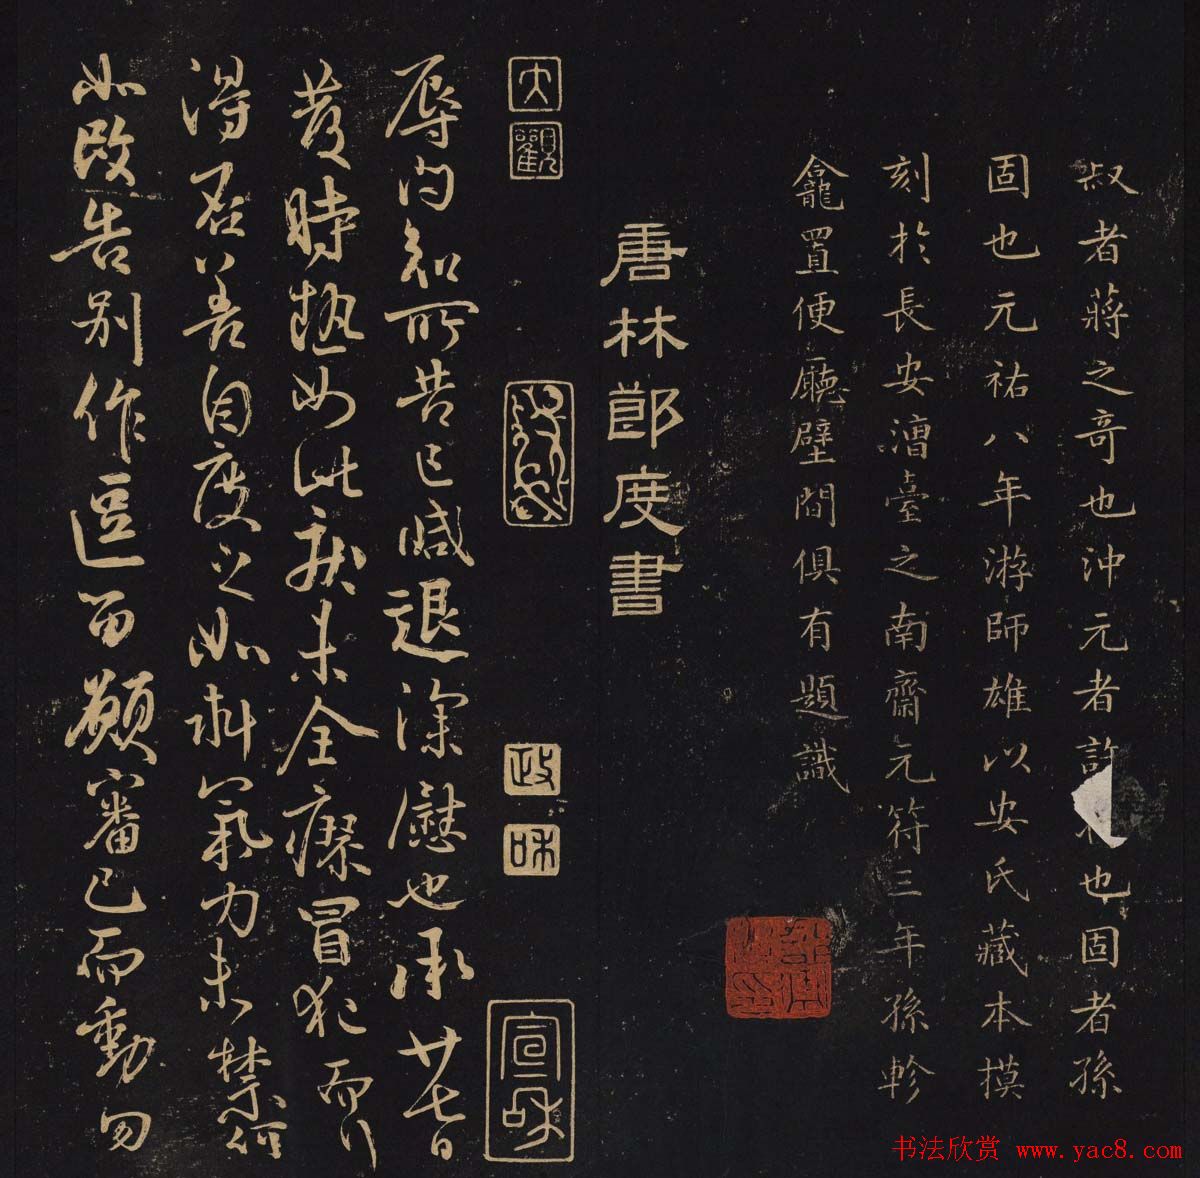 叔者蔣之奇也沖元者許也固者孫
固也元祐八年游師雄以安氏藏本摸
刻於長安漕臺之南齋元符三年孫軫
龕置便廳壁間俱有題識
唐林郎度書
大觀
政和
宣和
辱問知所苦已減退深慰也承廿七日
發時熱如此疾未全瘳冒犯而行
得否善自度之如料氣力未禁何
如改告別作區而願審己而動勿
书法欣赏 www.yac8.com